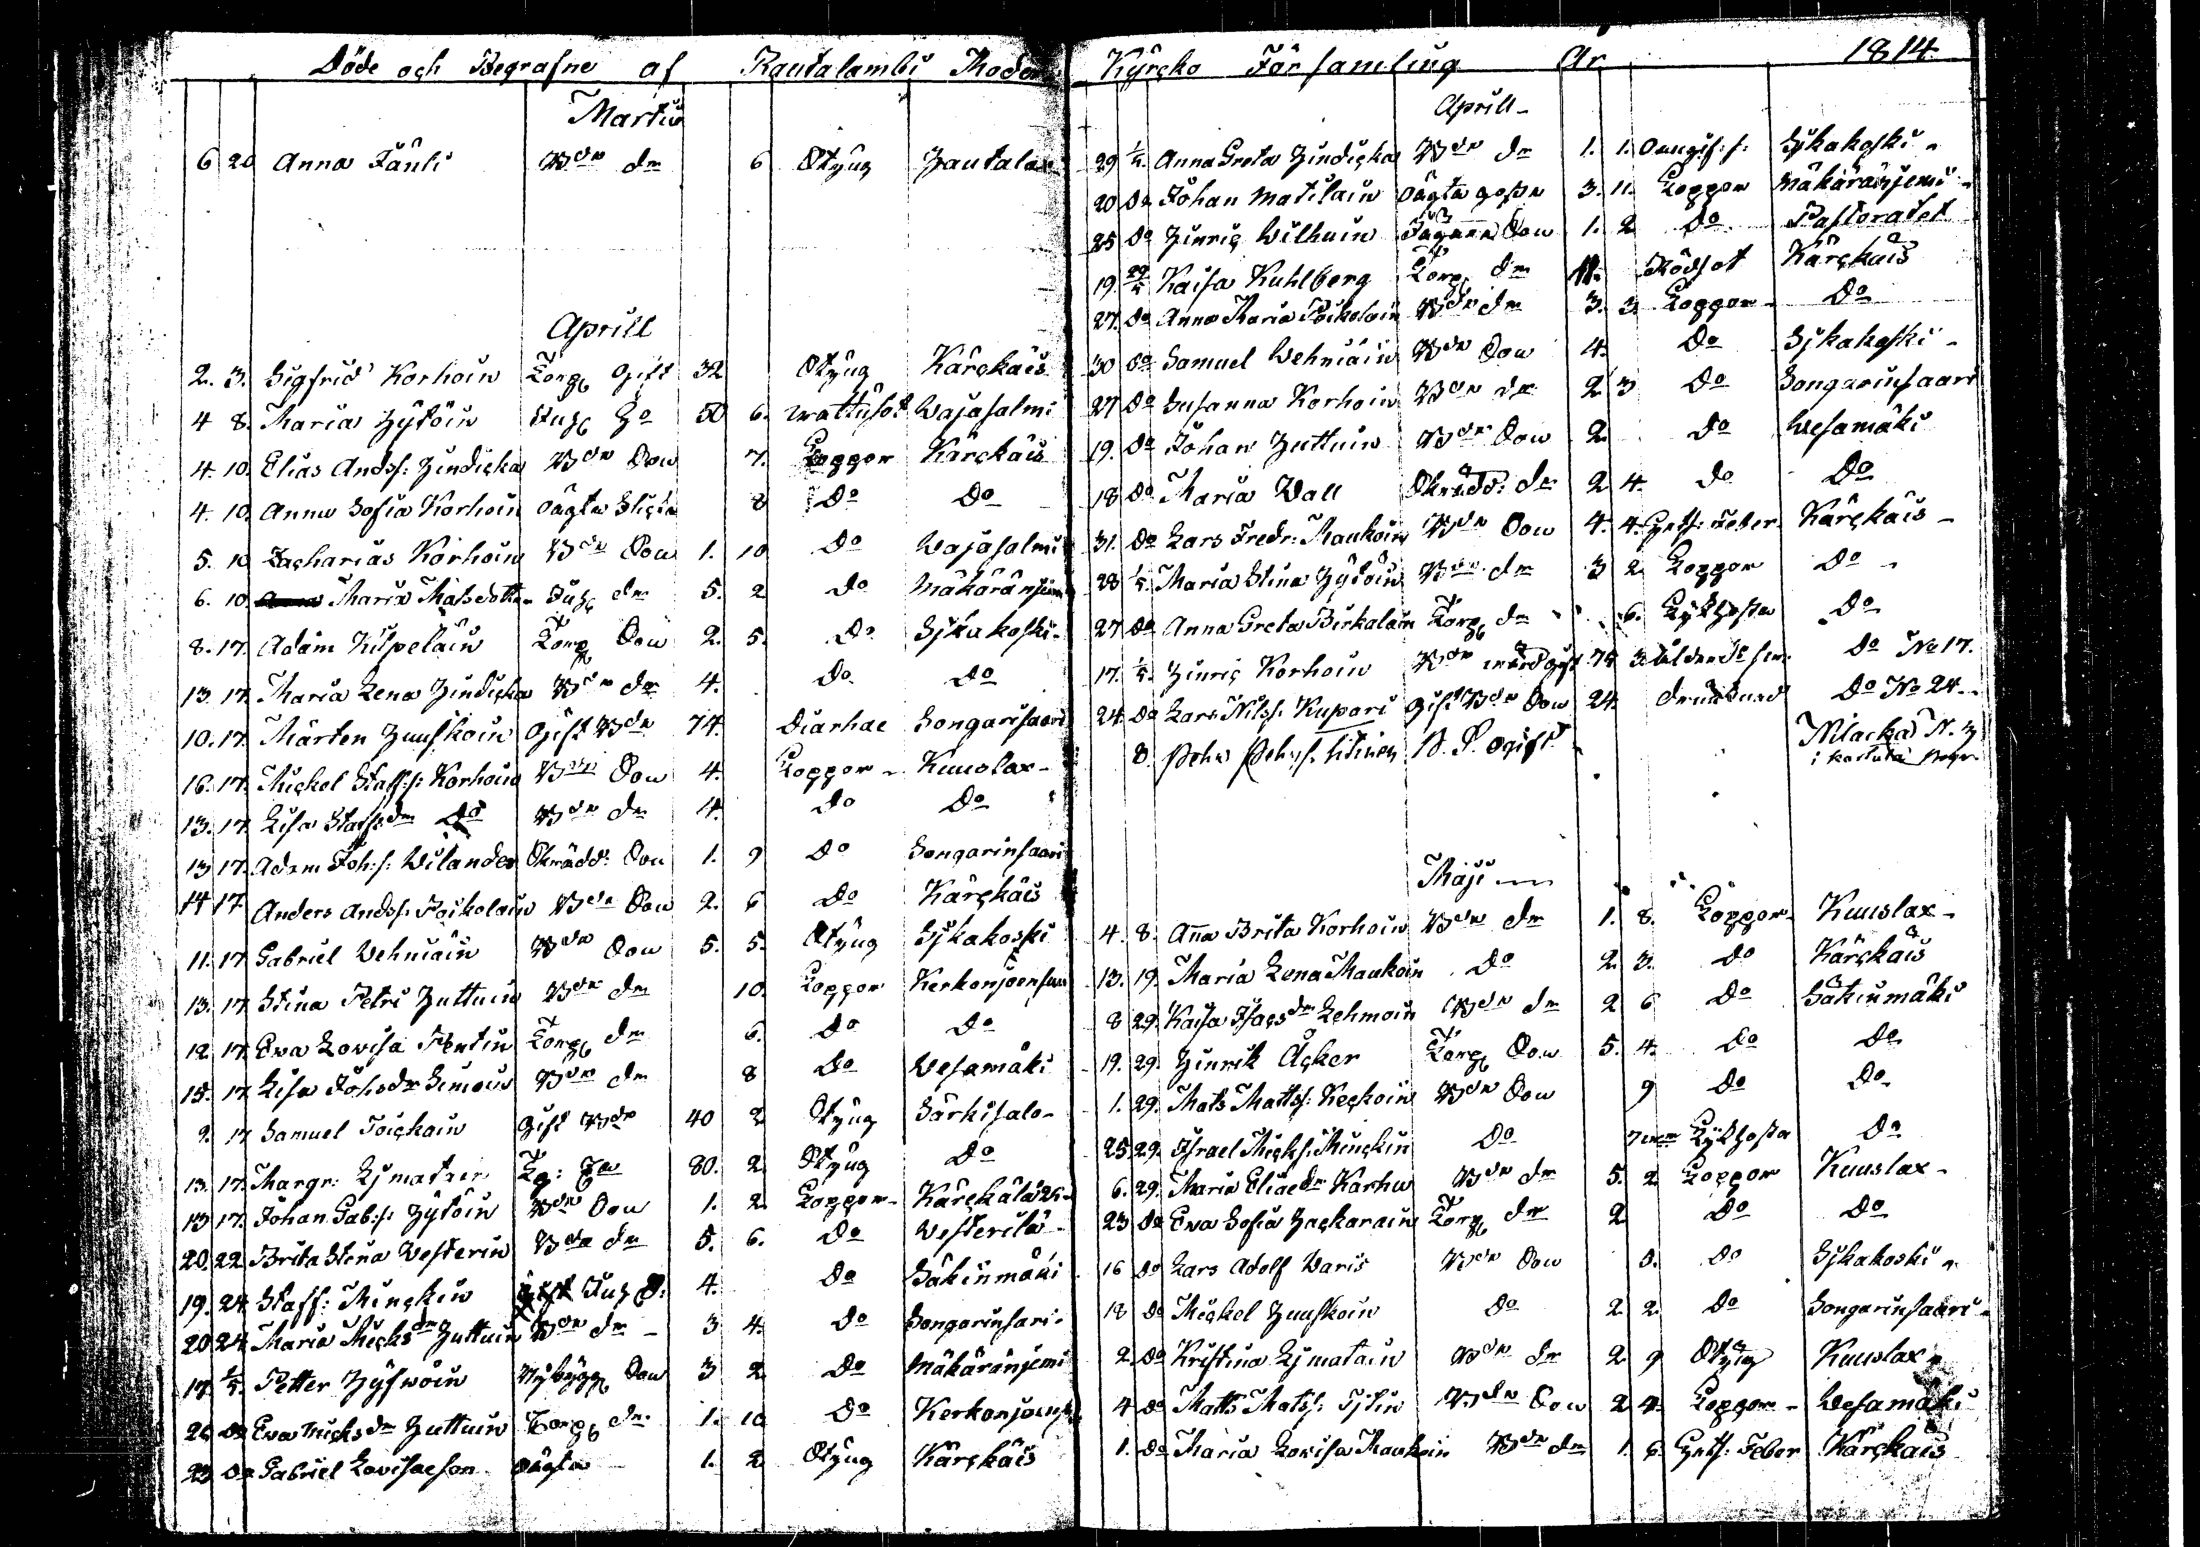 Döde och Begrafne af Rautalambi Moder Kyrcko Församling År 1814
Martii
6 20 Anna Jänti Bdn dr 6 Styng Hautalax
Aprill
2. 3. Sigfrid Korhoin Torp Gift 32 Styng Kärckäis
4 8. Maria Hytöin Inh Ha 50 6. wattusot Wajasalmi
4. 10. Elias Andss: Hindicka Bdn Son 7. Koppor Kärckäis
4. 10. Anna Sofia Korhoin oägta 8 Do Do
5. 10 Zacharias Korhoin Bdn Son 1. 10 Do Wajasalmi
6. 10. Maria Matsdotter Inh dr 5. 2 Do Mäkäränjemi
8. 17. Adam Kilpeläin Torp Son 2. 5. Do Sjkakoski
13 17. Maria Lena Hindicka Bdn dr 4. Do Do
10. 17. Mårten Huuskoin Gift Bdn 74. Diarhae Songarisaari
16. 17. Mickel Staffs: Korhoin Bdn Son 4. Koppor Kuuslax
13. 17. Lisa Staffsdr Do Bdn dr 4. Do Do
13 17. Adam Joh:s: Wilander Skrädd: Son 1. 9 Do Songarinsaari
14 17 Anders Andss: Poikolain Bdn Son 2. 6 Do Kärckäis
11. 17 Gabriel Wehniäin Bdn Son 5. 5. Styng Sjkakoski
13. 17 Stina Petri Huttuin Bdn dr 10. Koppor Kerkonjoensuu
12 17. Ewa Lovisa Pentin Torp dr 6. Do Do
15. 17. Lisa Johsdr Simoin Bdn dr 8 Do Wesamäki
9. 17 Samuel Toickain Gift Bdn 40 2 Styng Särkisalo
13. 17. Margr: Ljmatain 80. 2 Styng Do
13 17. Johan Gab:s: Hytöin Bdn Son 1. 2. Koppor
20. 22 Brita Stina Westerin Bda dr 5. 6. Do Westerilä
19. 24 Staff: Minckin Inh S: 4. Do Säkinmäki
20 24. Maria Micksdr Huttuin Bdn dr 3 4. Do Songarinsari
17 1/5. Petter Hyfwöin Nybygg Son 3 2 Do Mäkäränjemi
26 Do Ewa Micksdr Huttuin Torp dr 1. 10 Do Kerkonjoensuu
23 Do Gabriel Lovisaeson oägta 1. 2 Styng Kärckäis
Aprill
29 1/5 Anna Greta Hindicka Bdn dr 1. 1. Oangif: s: Sjkakoski
20 Do Johan Matilain oägta gosse 3. 11. Koppor Mäkäränjemi
25 Do Hinric Wilhuin Son 1. 2 Do Pastoratet
19. Kaisa Kuhlberg Torp dr 11. Rödsot Kärckäis
27. Do Anna Maria Poikolain Bdn dr 3. 3. Koppor Do
30 Do Samuel Wehniäin Bdn Son 4. Do Sjkakoski
27 Do Susanna Korhoin Bdn dr 2 3 Do Songarinsaari
19. Do Johan Huttuin Bdn Son 2. Do Wesamäki
18 Do Maria Wall Skrädd: dr 2 4. Do Do
31. Do Lars Fredr: Maukoin Bdn Son 4. 4. Feber Kärckäis
28 1/5. Maria Stina Hytöin Bdn dr 3 2 Koppor Do
27 Do Anna Greta Pirkolain Torp dr 6. Kikhosta Do
17. 1/5. Hinric Korhoin Bdn 74 3. Do No 17.
24. Do Lars Nilss: Kupari Gift Bdn Son 24. drunknad Do No 24.
8
Maji
4. 8. Anna Brita Korhoin Bdn dr 1. 8. Koppor Kuuslax
13. 19. Maria Lena Maukoin Do 2. 3. Do Kärckäis
8 29. Kaisa Isacsdr Lehmoin Bdn dr 2 6 Do Säkinmäki
19. 29. Hinrik Åcker Torp Son 5. 4. Do Do
1. 29. Mats Mattss: Keckoin Bdn Son 9 Do Do
25 29. Israel Micks: Minckin Do 7 Kikhosta Do
6. 29. Maria Eliaedr Karhu Bdn dr 5. 2 Koppor Kuuslax
23 Do Ewa Sofia Zackarain Torp dr 2 Do Do
16 Do Lars Adolf Waris Bdn Son 3. Do Sjkakoski
18 Do Mickel Huuskoin Do 2. 2. Do Songarinsaari
2. Do Kristina Ljmatain Bdn dr 2. 9 Styng Kuuslax
4 Do Matts Matss: Bdn Son 2 4. Koppor Wesamäki
1. Do Maria Lovisa Maukoin Bdn dr 1. 6. Feber Kärckäis